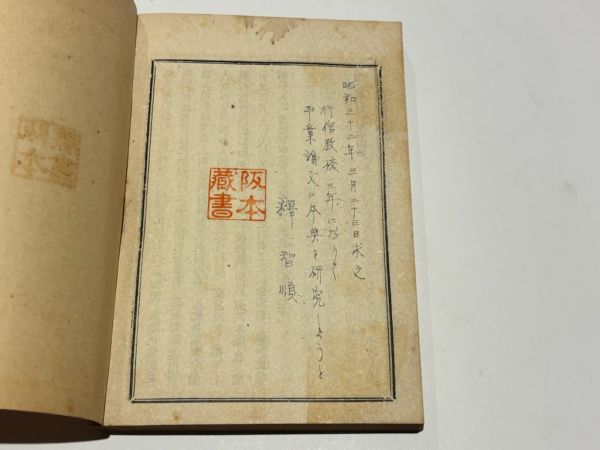 昭和三十二年三月二十三日求之
行信教校三年になりて
卒業論文に本典を研究しようと
釋智順
阪本
蔵書